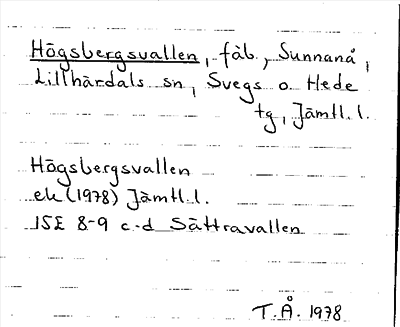 Högsbergsvallen, fäb., Sunnanå,
Lillhärdals sn, Svegs o. Hede
tg, Jämtl. l.
Högsbergsvallen
ek (1978) Jämtl. l.
15E 8-9 c-d Sättravallen
T.Å. 1978.